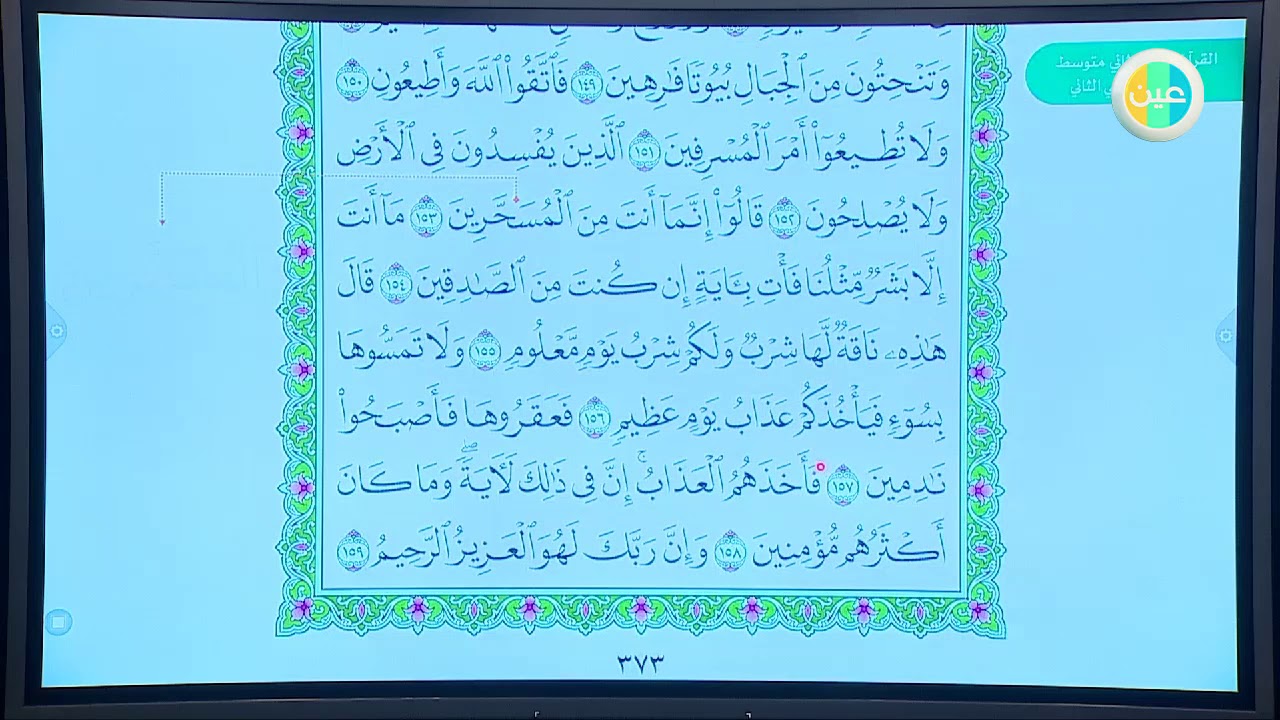 وَتَنْحِتُونَ مِنَ ٱلْجِبَالِ بُيُوتًا فَٰرِهِينَ ١٤٩ فَٱتَّقُوا۟ ٱللَّهَ وَأَطِيعُونِ ١٥٠
وَلَا تُطِيعُوٓا۟ أَمْرَ ٱلْمُسْرِفِينَ ١٥١ ٱلَّذِينَ يُفْسِدُونَ فِى ٱلْأَرْضِ
وَلَا يُصْلِحُونَ ١٥٢ قَالُوٓا۟ إِنَّمَآ أَنتَ مِنَ ٱلْمُسَحَّرِينَ ١٥٣ مَآ أَنتَ
إِلَّا بَشَرٌ مِّثْلُنَا فَأْتِ بِـَٔايَةٍ إِن كُنتَ مِنَ ٱلصَّٰدِقِينَ ١٥٤ قَالَ
هَٰذِهِۦ نَاقَةٌ لَّهَا شِرْبٌ وَلَكُمْ شِرْبُ يَوْمٍ مَّعْلُومٍ ١٥٥ وَلَا تَمَسُّوهَا
بِسُوٓءٍ فَيَأْخُذَكُمْ عَذَابُ يَوْمٍ عَظِيمٍ ١٥٦ فَعَقَرُوهَا فَأَصْبَحُوا۟
نَٰدِمِينَ ١٥٧ فَأَخَذَهُمُ ٱلْعَذَابُ ۚ إِنَّ فِى ذَٰلِكَ لَءَايَةً ۖ وَمَا كَانَ
أَكْثَرُهُم مُّؤْمِنِينَ ١٥٨ وَإِنَّ رَبَّكَ لَهُوَ ٱلْعَزِيزُ ٱلرَّحِيمُ ١٥٩
٣٧٣
متوسط
الثاني
عين